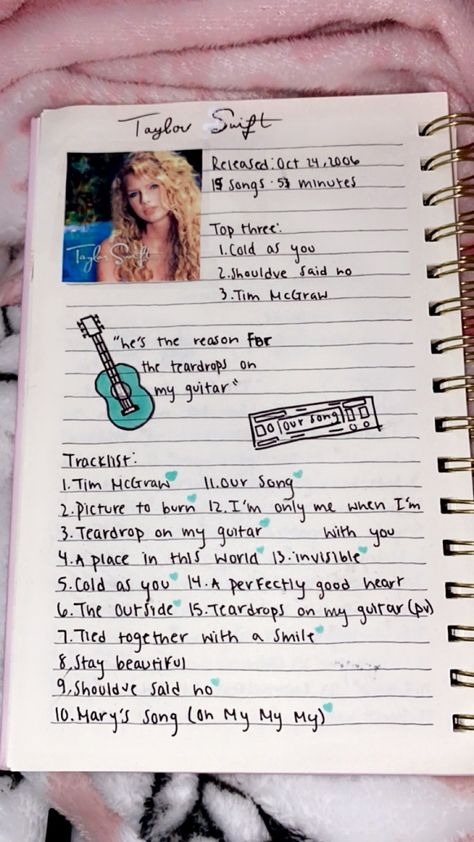 Taylor Swift
Released: Oct 24, 2006
15 songs · 53 minutes
Taylor Swift
Top three:
1. Cold as you
2. Shouldve said no
3. Tim McGraw
"he's the reason for
the teardrops on
my guitar"
our song
Tracklist:
1. Tim McGraw
2. Picture to burn
3. Teardrop on my guitar
4. A place in this world
5. Cold as you
6. The outside
7. Tied together with a smile
8. Stay beautiful
9. Shouldve said no
10. Mary's song (oh My My My)
11. Our song
12. I'm only me when I'm
with you
13. invisible
14. A perfectly good heart
15. Teardrops on my guitar (pv)